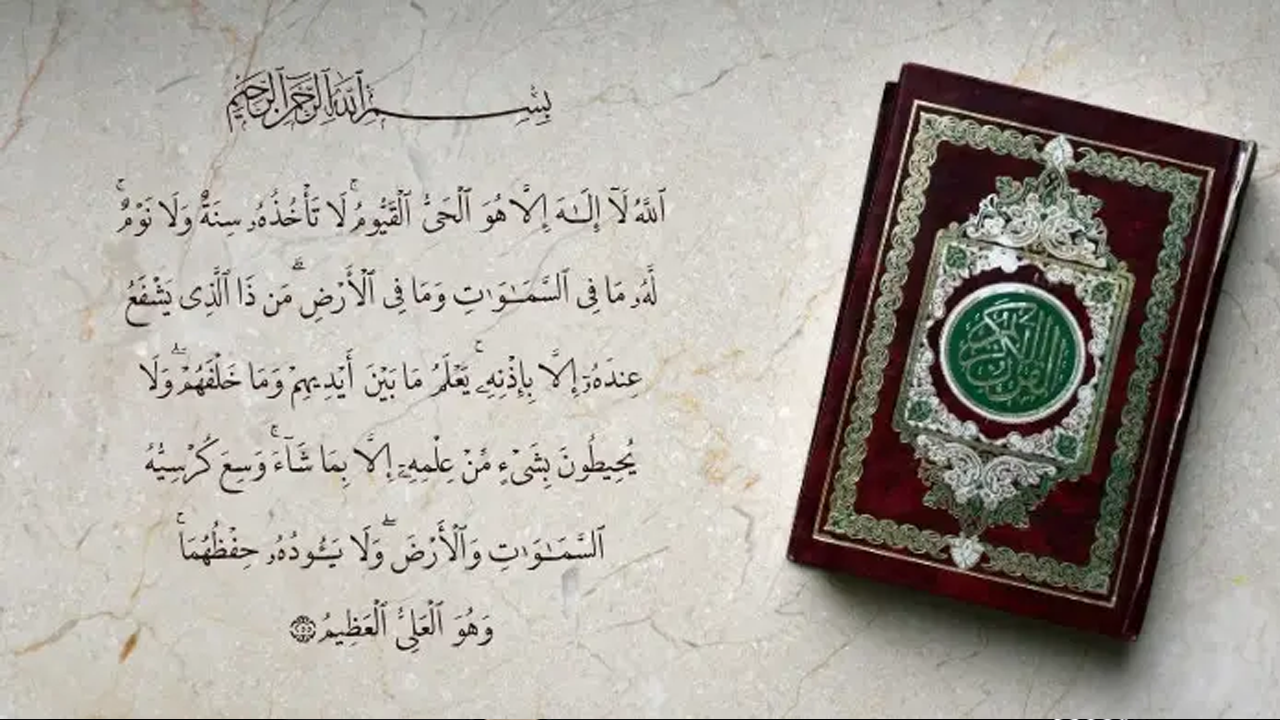 بِسْمِ ٱللَّهِ ٱلرَّحْمَٰنِ ٱلرَّحِيمِ
ٱللَّهُ لَآ إِلَـٰهَ إِلَّا هُوَ ٱلْحَىُّ ٱلْقَيُّومُ ۚ لَا تَأْخُذُهُۥ سِنَةٌ وَلَا نَوْمٌ ۚ
لَّهُۥ مَا فِى ٱلسَّمَـٰوَٰتِ وَمَا فِى ٱلْأَرْضِ ۗ مَن ذَا ٱلَّذِى يَشْفَعُ
عِندَهُۥٓ إِلَّا بِإِذْنِهِۦ ۚ يَعْلَمُ مَا بَيْنَ أَيْدِيهِمْ وَمَا خَلْفَهُمْ ۖ وَلَا
يُحِيطُونَ بِشَىْءٍ مِّنْ عِلْمِهِۦٓ إِلَّا بِمَا شَآءَ ۚ وَسِعَ كُرْسِيُّهُ
ٱلسَّمَـٰوَٰتِ وَٱلْأَرْضَ ۖ وَلَا يَـُٔودُهُۥ حِفْظُهُمَا ۚ
وَهُوَ ٱلْعَلِىُّ ٱلْعَظِيمُ ٢٥٥
القرآن الكريم